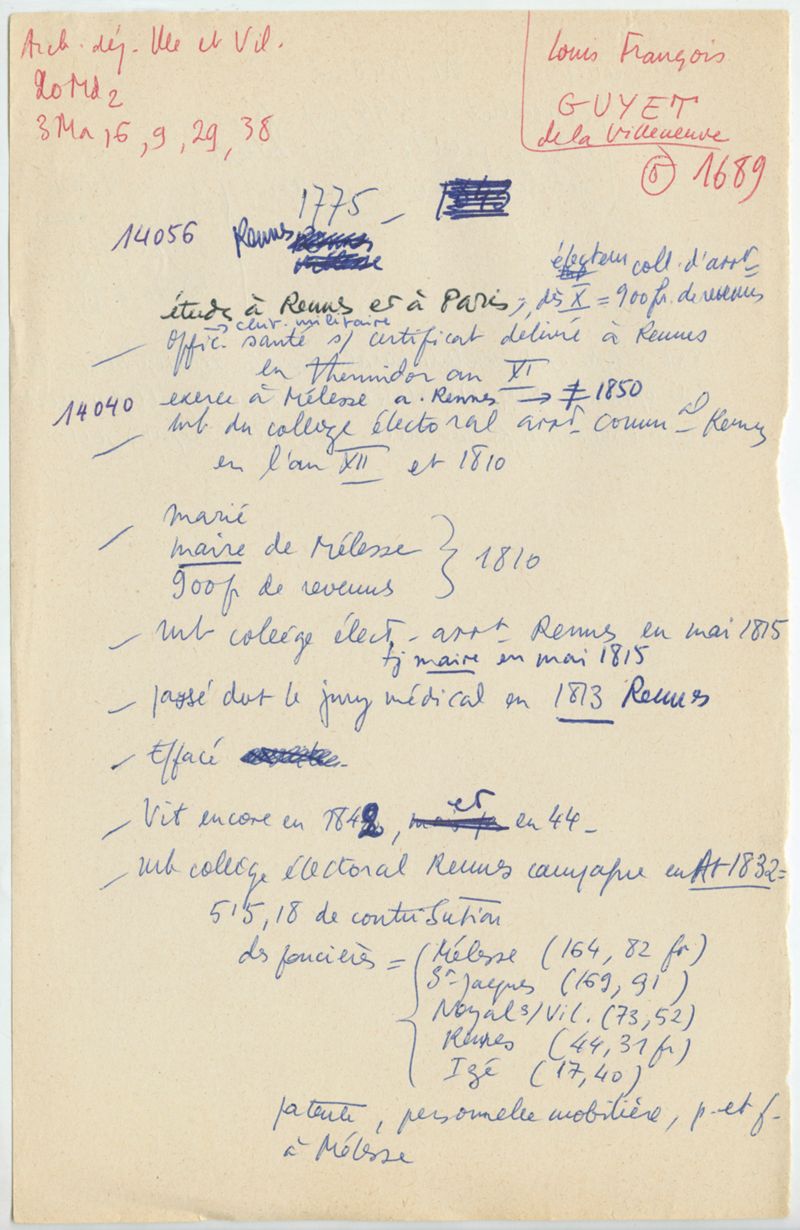 Arch. dép. Ille et Vil.
20Md2
3Ma, 6, 9, 29, 38
Louis François
GUYET
de la Villeneuve
1689
1775 -
14056 Rennes
électeur coll. d'arrt
études à Rennes et à Paris, dès X = 900 fr. de revenus
→ chir. militaire
offic. santé s/ certificat délivré à Rennes
en thermidor an XI
14040 exerce à Mélesse a. Rennes → ‡ 1850
mb du collège électoral arrt comm al Rennes
en l'an XII et 1810
marié
maire de Mélesse } 1810
900 fr de revenus
mb collège élect. arrt Rennes en mai 1815
tj maire en mai 1815
passé dvt le jury médical en 1813 Rennes
Effacé
Vit encore en 1842, et en 44 -
mb collège électoral Rennes campagne en At 1832 =
515,18 de contribution
des foncières = ( Mélesse (164, 82 fr)
St-Jacques (169, 91)
Noyal s/Vil. (73,52)
Rennes (44,31 fr)
Izé (17,40)
patente, personnelle mobilière, p. et f.
à Mélesse